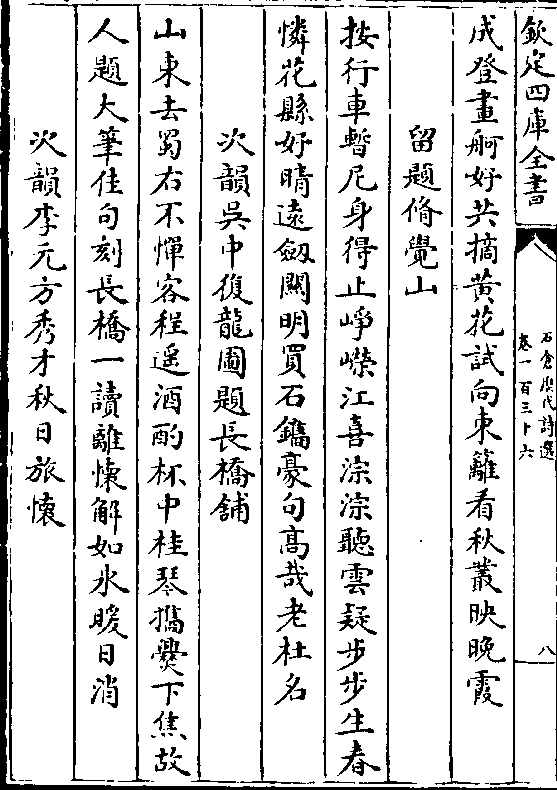 欽定四庫全書
石倉歷代詩選
卷一百三十六
八
成登畫舸好共摘黄花試向東籬看秋叢映晚霞
留題脩覺山
按行車暫尼身得止崢嶸江喜淙淙聽雲疑步步生春
憐花縣好晴遠劒闗明買石鐫豪句髙哉老杜名
次韻吳中復龍圖題長橋舖
山東去蜀右不憚客程遥酒酌杯中桂琴攜爨下焦故
人題大筆佳句刻長橋一讀離懷解如氷暖日消
次韻李元方秀才秋日旅懷